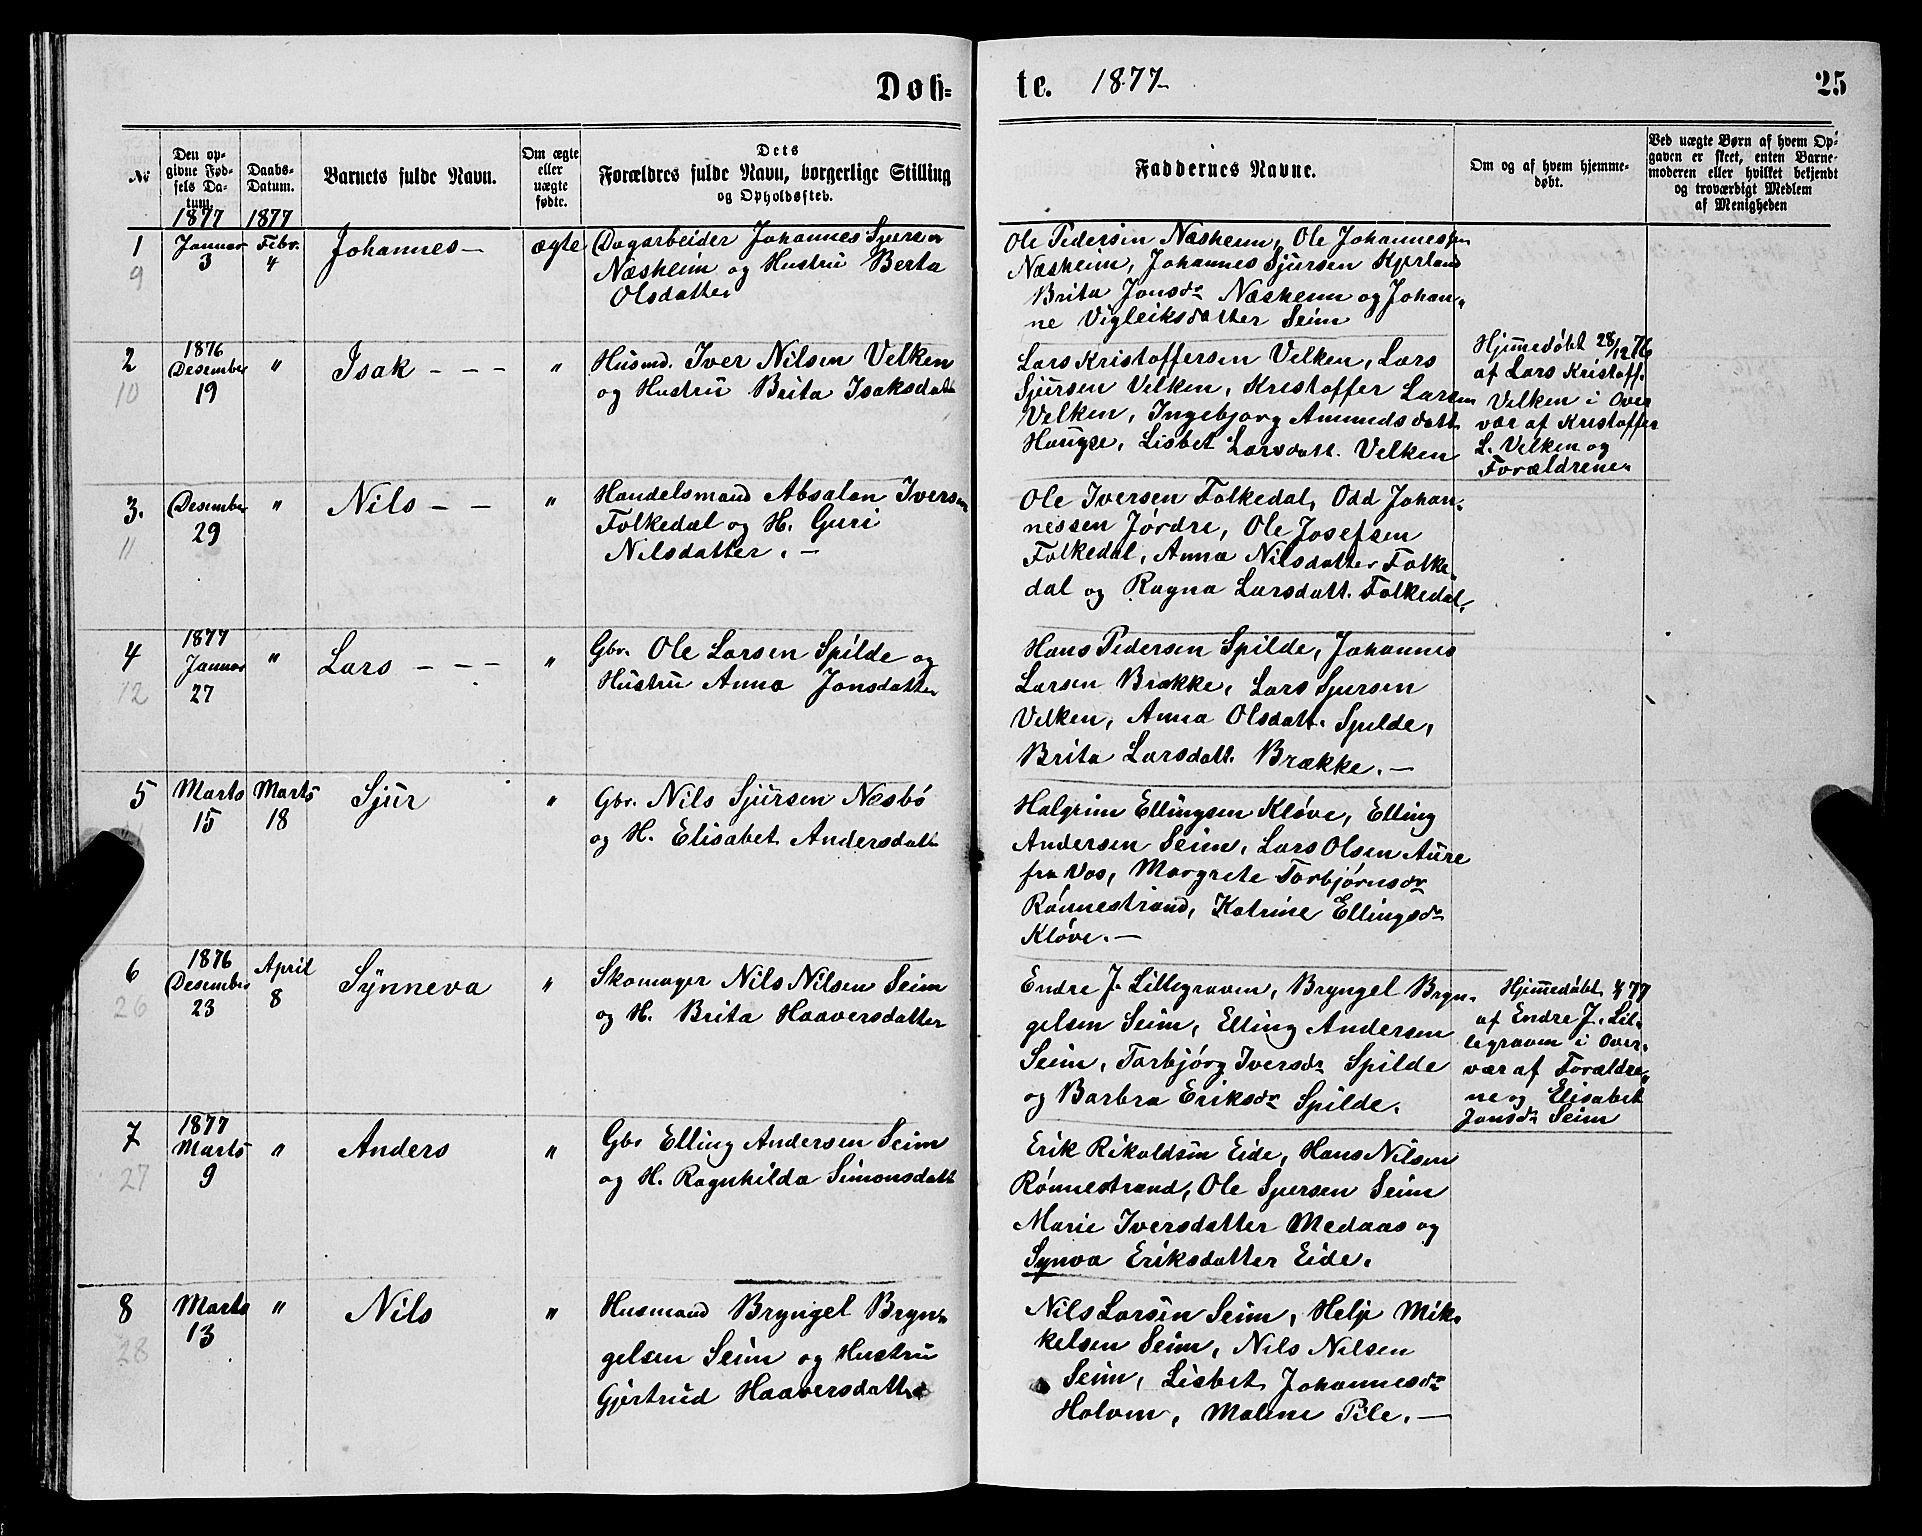 Døb-
te. 1877
25
№
Den op-
givne Fød-
sels Da-
tum.
1877
Daabs-
Datum.
1877
Barnets fulde Navn.
Om ægte
eller
uægte
fødte.
Dets
Forældres fulde Navn, borgerlige Stilling
og Opholdssted.
Faddernes Navne.
Om og af hvem hjemme-
døbt.
Ved uægte Børn af hvem Op-
gaven er skeet, enten Barne-
moderen eller hvilket bekjendt
og troværdigt Medlem
af Menigheden
1
9
Januar
3
Febr.
4
Johannes —
ægte
Dagarbeider Johannes Sjursen
Næsheim og Hustru Berta
Olsdatter
Ole Pedersen Næsheim, Ole Johannessen
Næsheim, Johannes Sjursen Kjerland
Brita Jonsdr Næsheim og Johan-
ne Vigleiksdatter Seim
2
10
1876
Desember
19
"
Isak - - -
"
Husmd. Iver Nilsen Velken
og Hustru Brita Isaksdatt
Lars Kristoffersen Velken, Lars
Sjursen Velken, Kristoffer Larsen
Velken, Ingebjorg Amundsdatt
Haugse, Lisbet Larsdatt. Velken
Hjemmedøbt 28/12 76
af Lars Kristoff.
Velken i Over
vær af Kristoffer
L. Velken og
Forældrene.
3.
11
Desember
29
"
Nils - -
"
Handelsmand Absalon Iversen
Folkedal og H. Guri
Nilsdatter. —
Ole Iversen Folkedal, Odd Johan-
nessen Jørdre, Ole Josefsen
Folkedal, Anna Nilsdatter Folke-
dal og Ragna Larsdatt. Folkedal.
4
12
1877
Januar
27
"
Lars - - -
"
Gbr. Ole Larsen Spilde og
Hustru Anna Jonsdatter
Hans Pedersen Spilde, Johannes
Larsen Brække, Lars Sjursen
Velken, Anna Olsdatt. Spilde,
Brita Larsdatt. Brække. —
5
Marts
15
Marts
18
Sjur
"
Gbr. Nils Sjursen Næsbø
og H. Elisabet Andersdatt
Halgrim Ellingsen Kløve, Elling
Andersen Seim, Lars Olsen Aure
fra Vos, Margrete Torbjørnsdr
Rønnestrand, Katrine Ellingsdr
Kløve. —
6
26
1876
Desember
23
April
8
Synneva
"
Skomager Nils Nilsen Seim
og H. Brita Haaversdatter
Endre J. Lillegraven, Bryngel Bryn-
gelsen Seim, Elling Andersen
Seim, Torbjørg Iversdr Spilde
og Barbra Eriksdr Spilde.
Hjemmedøbt 77
af Endre J. Lil-
legraven i Over-
vær af Forældre-
ne og Elisabet
Jonsdr Seim
7
27
1877
Marts
9
"
Anders
"
Gbr Elling Andersen Seim
og H. Ragnhilda Simonsdatt
Erik Rikoldsen Eide, Hans Nilsen
Rønnestrand, Ole Sjursen Seim
Marie Iversdatter Medaas og
Synva Eriksdatter Eide.
8
28
Marts
13
"
Nils
"
Husmand Bryngel Bryn-
gelsen Seim og Hustru
Gjertrud Haaversdatter
Nils Larsen Seim, Helje Mik-
kelsen Seim, Nils Nilsen
Seim, Lisbet Johannesdr
Holven, Malene Pile. —